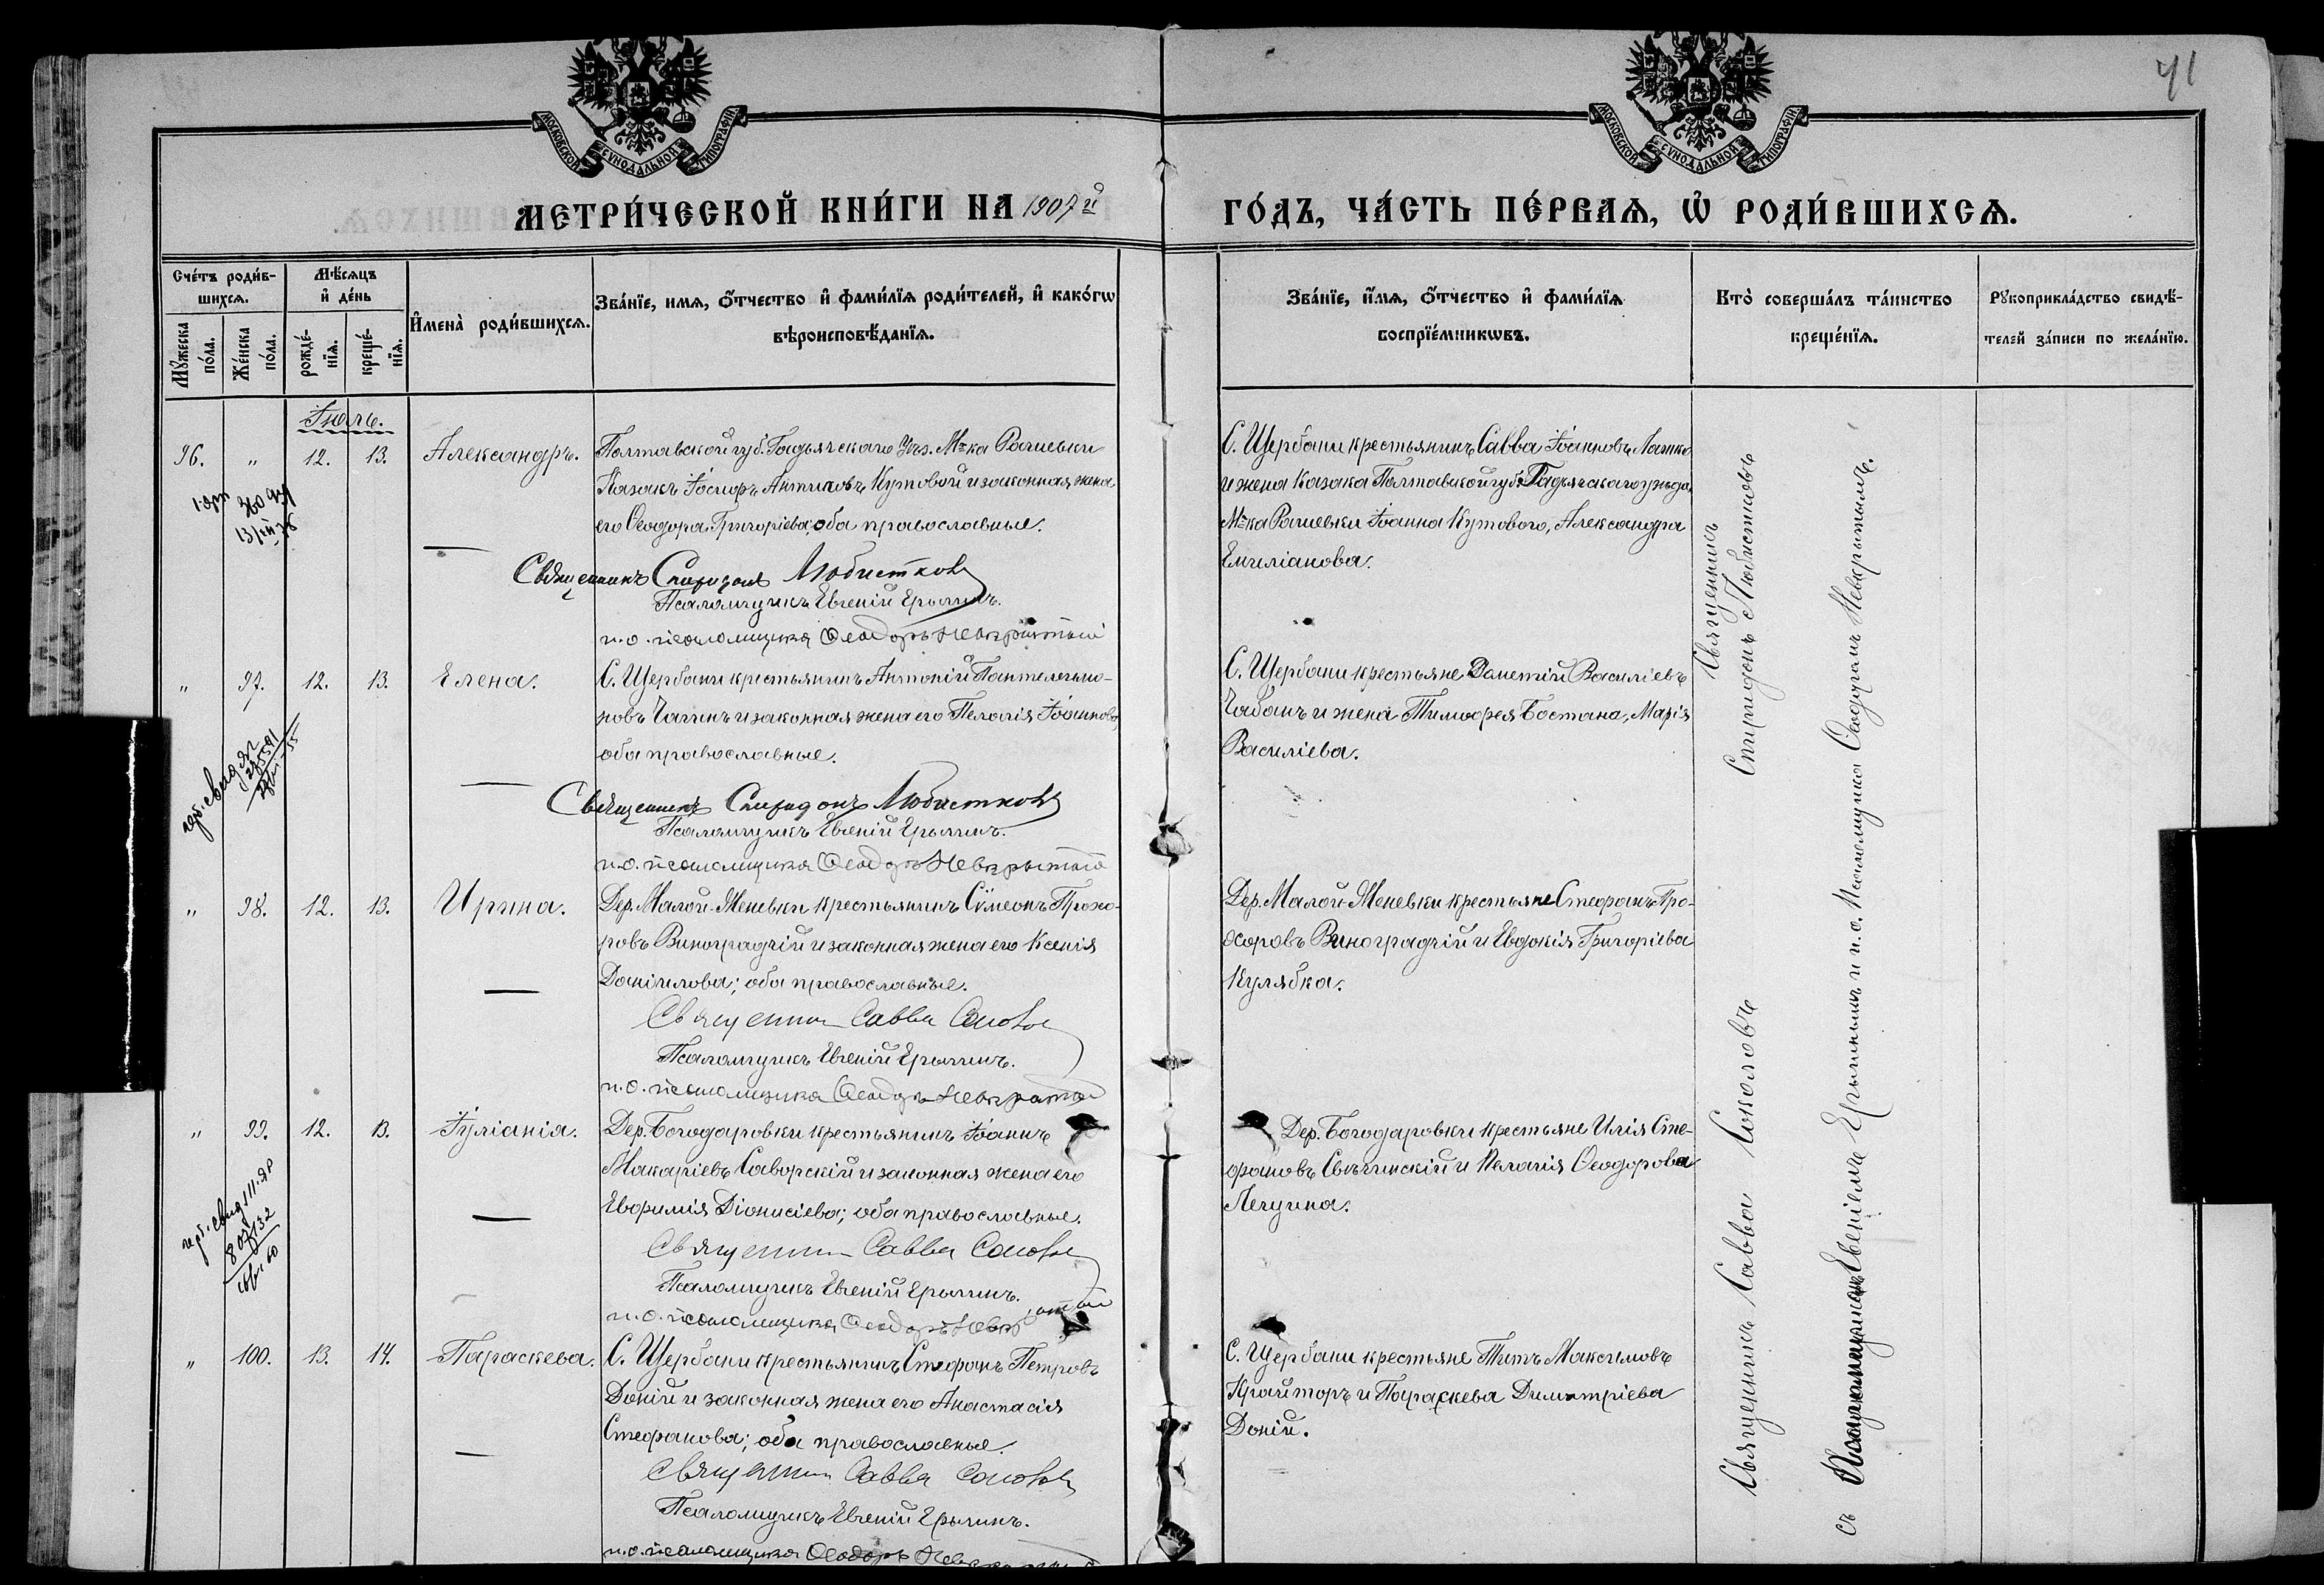 МОСКОВСКОЙ СѴНОДАЛЬНОЙ ТИПОГРАФІИ.
МОСКОВСКОЙ СѴНОДАЛЬНОЙ ТИПОГРАФІИ.
41
МЕТРИ́ЧЕСКОЙ КНИ́ГИ НА 1907й
ГО́ДЪ, ЧА́СТЬ ПЕ́РВАѦ, Ѡ РОДИ́ВШИХСѦ.
Сче́тъ роди́в-
шихсѧ.
Мꙋ́жеска по́ла.
Же́нска по́ла.
Мѣ́сѧцъ
и де́нь
рожде́-
нїѧ.
креще́-
нїѧ.
И҆мена̀ роди́вшихсѧ.
Зва́нїе, имѧ, ѻ҆́тчество и҆ фами́лїѧ роди́телей, и҆ како́гѡ
вѣроисповѣ́данїѧ.
Зва́нїе, и҆́мѧ, ѻ҆́тчество и҆ фами́лїѧ
воспрїе́мникѡвъ.
Кто̀ соверша́лъ та́инство
креще́нїѧ.
Рꙋкоприкла́дство свидѣ́-
телей за́писи по жела́нїю.
Іюль.
96. " 12. 13. Александръ.
Полтавской губ. Гадячскаго Уѣз. М-ка Рашевки
Казакъ Іосифъ Антиповъ Кутовой и законная жена
его Ѳеодора Григоріева; оба православные.
Священникъ Спиридонъ Любистковъ
Псаломщикъ Евгеній Ерыгинъ.
и. о. псаломщика Ѳеодоръ Невкрытый
С. Щербани крестьянинъ Савва Іоанновъ
и жена Казака Полтавской губ. Гадячскаго уѣзда,
М-ка Рашевки Іоанна Кутового, Александра
Емиліанова.
" 97. 12. 13. Елена.
С. Щербани крестьянинъ Антоній Пантелеимо-
новъ и законная жена его Пелагія Іоаннова,
оба православные.
Священникъ Спиридонъ Любистковъ
Псаломщикъ Евгеній Ерыгинъ.
и. о. псаломщика Ѳеодоръ Невкрытый
С. Щербани крестьяне Дометій Василіевъ
Чабанъ и жена Тимоѳея Бостана, Марія
Василіева.
" 98. 12. 13. Ирина.
Дер. Малой-Женевки крестьянинъ Сѵмеонъ Прохо-
ровъ Виноградчій и законная жена его Ксенія
Даніилова; оба православные.
Священникъ Савва Соколовъ
Псаломщикъ Евгеній Ерыгинъ.
и. о. псаломщика Ѳеодоръ Невкрытый
Дер. Малой-Женевки крестьяне Стефанъ Про-
хоровъ Виноградчій и Евдокія Григоріева
Кулябка.
" 99. 12. 13. Іуліанія.
Дер. Богодаровки крестьянинъ Іоаннъ
Макаріевъ Саворскій и законная жена его
Евфимія Діонисіева; оба православные.
Священникъ Савва Соколовъ
Псаломщикъ Евгеній Ерыгинъ.
и. о. псаломщика Ѳеодоръ
Дер. Богодаровки крестьяне Илія Сте-
фановъ и Пелагія Ѳеодорова
" 100. 13. 14. Параскева.
С. Щербани крестьянинъ Стефанъ Петровъ
Доній и законная жена его Анастасія
Стефанова; оба православные.
Священникъ Савва Соколовъ
Псаломщикъ Евгеній Ерыгинъ.
и. о. псаломщика Ѳеодоръ
С. Щербани крестьяне Титъ Максимовъ
Крайторъ и Параскева Димитріева
Доній.
Священникъ
Спиридонъ Любистковъ
Священникъ Савва Соколовъ
съ Псаломщикомъ Евгеніемъ Ерыгинымъ и и. о. Псаломщика Ѳеодоромъ Невкрытымъ.